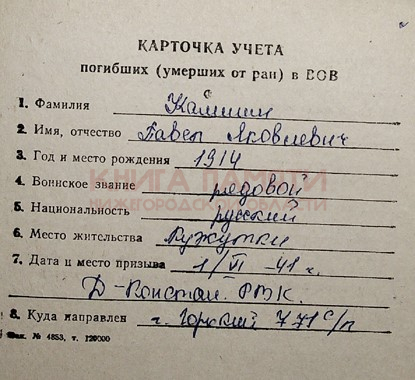 КАРТОЧКА УЧЕТА
погибших (умерших от ран) в ВОВ
1. Фамилия Калинин
2. Имя, отчество Павел Яковлевич
3. Год и место рождения 1914
КНИГА ПАМЯТИ
4. Воинское звание рядовой
НИЖЕГОРОДСКОЙ ОБЛАСТИ
5. Национальность русский
6. Место жительства Ружутки
7. Дата и место призыва 1/VI 41 г.
Д-Констан. РВК.
8. Куда направлен г. Горький 771 с/п
Зак. № 4853, т. 120000